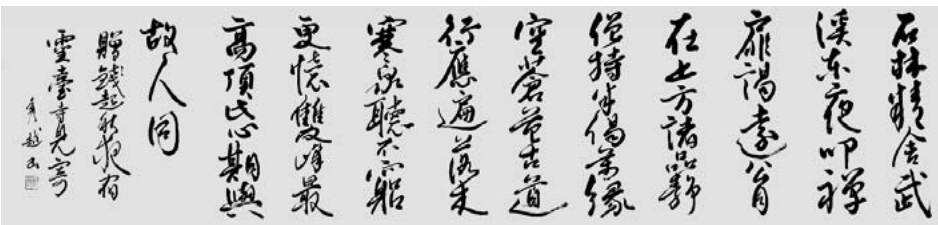 石林精舍武
溪东夜叩禅
扉謁遠公月
在上方諸品靜
僧持半偈萬緣
空蒼苔古道
行應遍落木
寒泉聽不窮
更憶雙峰最
高頂此心期與
故人同
贈錢起秋夜宿
靈臺寺見寄